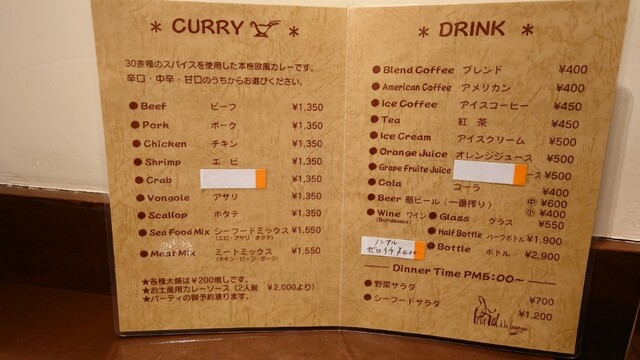 * CURRY *
30余種のスパイスを使用した本格欧風カレーです。
辛口・中辛・甘口のうちからお選びください。
●Beef ビーフ ¥1,350
●Pork ポーク ¥1,350
●Chicken チキン ¥1,350
●Shrimp エビ ¥1,350
●Crab ¥1,350
●Vongole アサリ ¥1,350
●Scallop ホタテ ¥1,350
●Sea Food Mix シーフードミックス ¥1,550
(エビ・アサリ ホタテ)
●Meat Mix ミートミックス ¥1,550
(チキン・ビーフ・ポーク)
★各種大盛は¥200増しです。
★お土産用カレーソース(2人前 ¥2,000より)
★パーティの御予約承ります。
* DRINK *
●Blend Coffee ブレンド ¥400
●American Coffee アメリカン ¥400
●Ice Coffee アイスコーヒー ¥450
●Tea 紅 茶 ¥450
●Ice Cream アイスクリーム ¥500
●Orange Juice オレンジジュース ¥500
●Grape Fruite Juice ース ¥500
●Cola コーラ ¥400
●Beer 瓶ビール(一番搾り) 中 ¥600
小 ¥400
●Wine ワイン ●Glass グラス ¥550
(Bordeaux)
●Half Bottle ハーフボトル ¥1,900
●Bottle ボトル ¥2,900
ノンアル
ゼロイチ ¥400
Dinner Time PM5:00~
●野菜サラダ ¥700
●シーフードサラダ ¥1,200